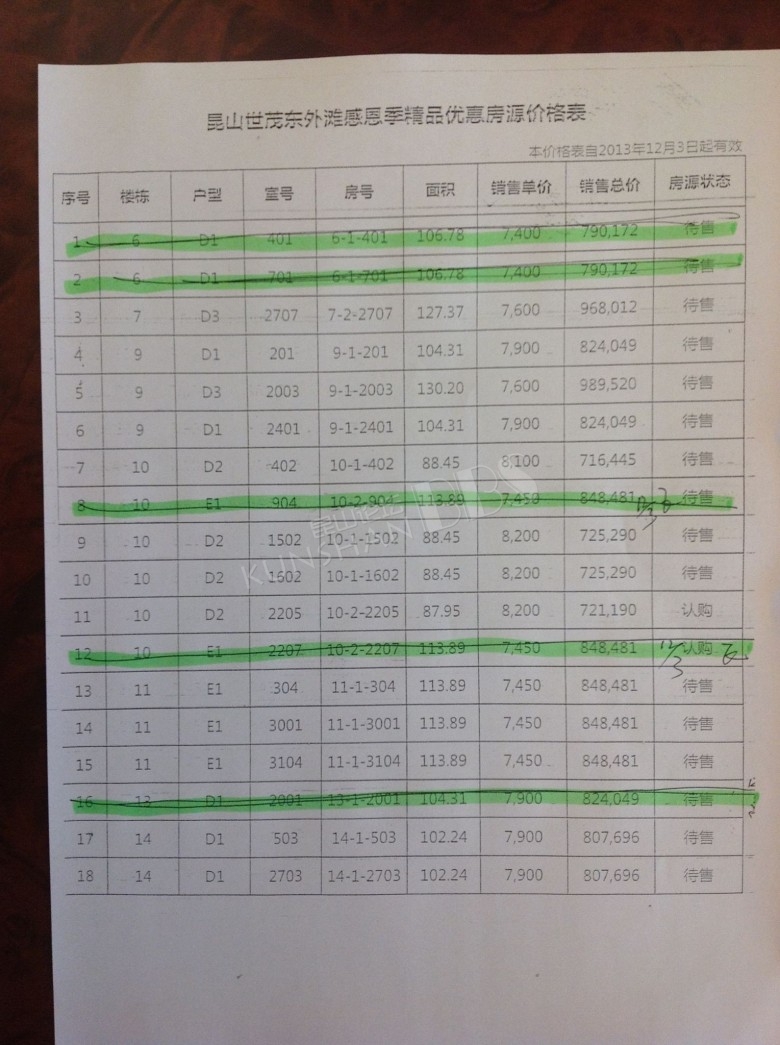 昆山世茂东外滩感恩季精品优惠房源价格表
本价格表自2013年12月3日起有效
序号 楼栋 户型 室号 房号 面积 销售单价 销售总价 房源状态
1 6 D1 401 6-1-401 106.78 7,400 790,172 待售
2 6 D1 701 6-1-701 106.78 7,400 790,172 待售
3 7 D3 2707 7-2-2707 127.37 7,600 968,012 待售
4 9 D1 201 9-1-201 104.31 7,900 824,049 待售
5 9 D3 2003 9-1-2003 130.20 7,600 989,520 待售
6 9 D1 2401 9-1-2401 104.31 7,900 824,049 待售
7 10 D2 402 10-1-402 88.45 8,100 716,445 待售
8 10 E1 904 10-2-904 113.89 7,450 848,481 待售
9 10 D2 1502 10-1-1502 88.45 8,200 725,290 待售
10 10 D2 1602 10-1-1602 88.45 8,200 725,290 待售
11 10 D2 2205 10-2-2205 87.95 8,200 721,190 认购
12 10 E1 2207 10-2-2207 113.89 7,450 848,481 认购
13 11 E1 304 11-1-304 113.89 7,450 848,481 待售
14 11 E1 3001 11-1-3001 113.89 7,450 848,481 待售
15 11 E1 3104 11-1-3104 113.89 7,450 848,481 待售
16 13 D1 2001 13-1-2001 104.31 7,900 824,049 待售
17 14 D1 503 14-1-503 102.24 7,900 807,696 待售
18 14 D1 2703 14-1-2703 102.24 7,900 807,696 待售
KUNSHAN BBS